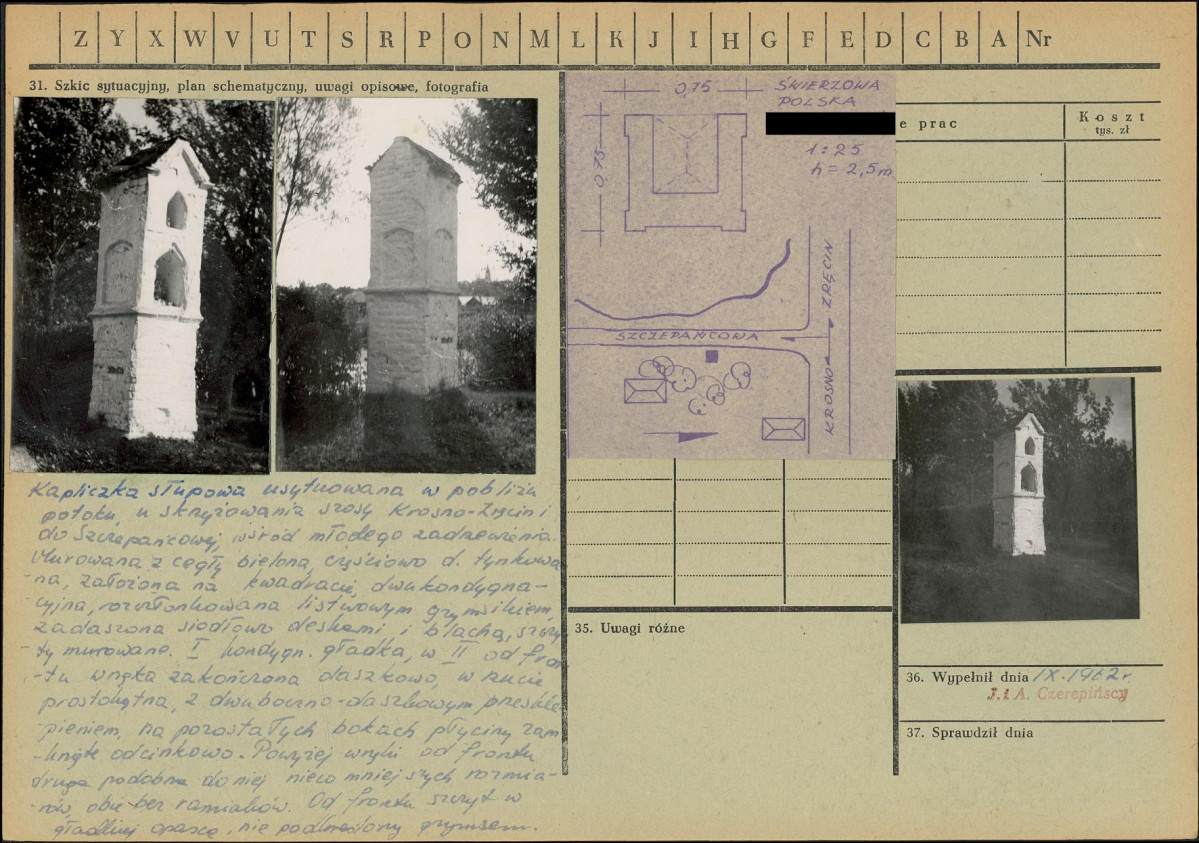 Z Y X W V U T S R P O N M L K J I H G F E D C B A Nr
31. Szkic sytuacyjny, plan schematyczny, uwagi opisowe, fotografia
Kapliczka słupowa usytuowana w pobliżu
potoku, u skrzyżowania szosy Krosno-Zręcin i
do Szczepańcowej, wśród młodego zadrzewienia.
Murowana z cegły bielona, częściowo d. tynkowa-
-na, założona na kwadracie, dwukondygna-
-cyjna, rozczłonkowana listwowym gzymsikiem,
zadaszona siodłowo deskami i blachą, szczy-
-ty murowane. I kondygn. gładka, w II od fron-
-tu wnęka zakończona daszkowo, w rzucie
prostokątna, z dwuboczno-daszkowym przeskle-
pieniem, na pozostałych bokach płyciny zam-
-knięte odcinkowo. Powyżej wnęki od frontu
druga podobna do niej nieco mniejszych rozmia-
-rów, obie bez ramiaków. Od frontu szczyt w
gładkiej opasce, nie podkreślony gzymsem.
0,75
0,75
ŚWIERZOWA
POLSKA
1:25
h = 2,5 m
SZCZEPAŃCOWA
KROSNO ZRĘCIN
e prac
Koszt
tys. zł
35. Uwagi różne
36. Wypełnił dnia IX.1962 r.
J. i A. Czerepińscy
37. Sprawdził dnia